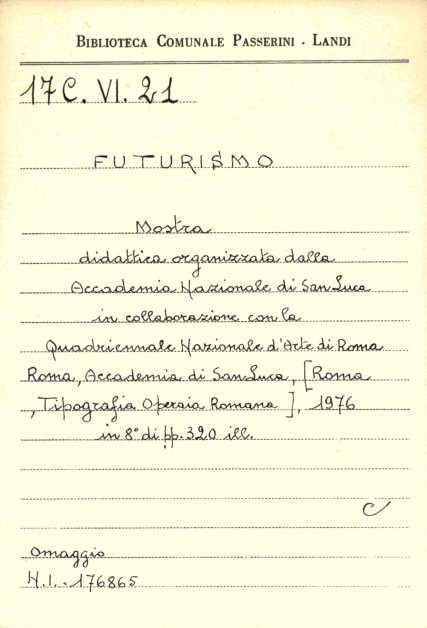 BIBLIOTECA COMUNALE PASSERINI - LANDI
17 C. VI. 21
FUTURISMO
Mostra
didattica organizzata dalla
Accademia Nazionale di San Luca
in collaborazione con la
Quadriennale Nazionale d'Arte di Roma
Roma, Accademia di San Luca, [Roma
, Tipografia Operaia Romana], 1976
in 8° di pp. 320 ill.
C
Omaggio
N.I. - 176865